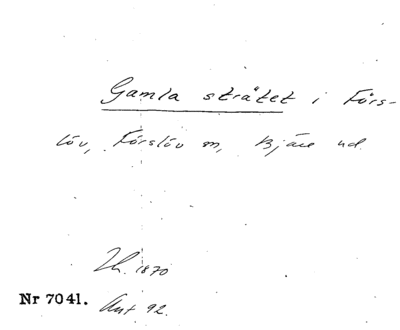 Gamla stråtet i Förs-
löv, Förslöv sn, Bjäre hd.
Th. 1870
Nr 7041.
Ant 92.